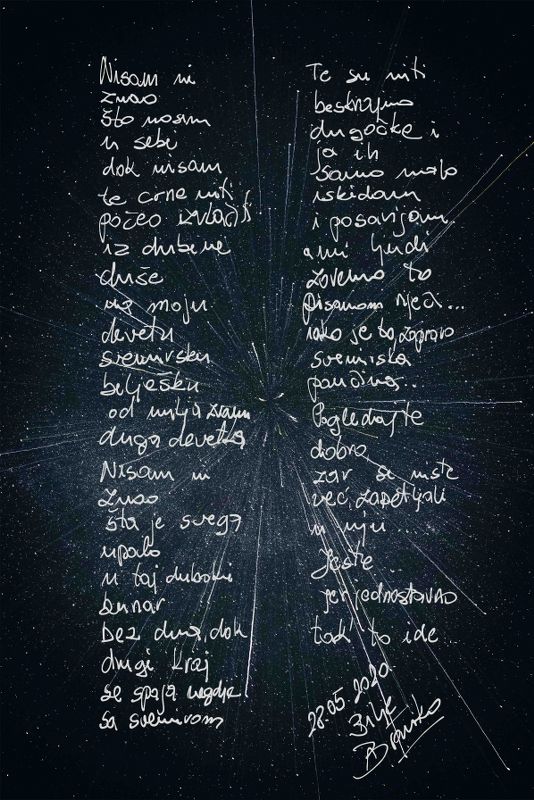 Nisam ni
znao
što nosim
u sebi
dok nisam
te crne niti
počeo izvlačiti
iz dubine
duše
uz moju
devetu
svemirsku
bilješku
od milja zvanu
duga devetka
Nisam ni
znao
šta je svega
upalo
u taj duboki
bunar
bez dna, dok
drugi kraj
se spaja negdje
sa svemirom
Te su niti
beskrajno
dugačke i
ja ih
samo malo
iskidam
i posavijam
a mi ljudi
zovemo to
pisanom riječi...
iako je to zapravo
svemirska
paučina...
Pogledajte
dobro
zar se niste
već zapetljali
u nju
Jeste
jer jednostavno
tak to ide...
28.05.2020.
Bilje